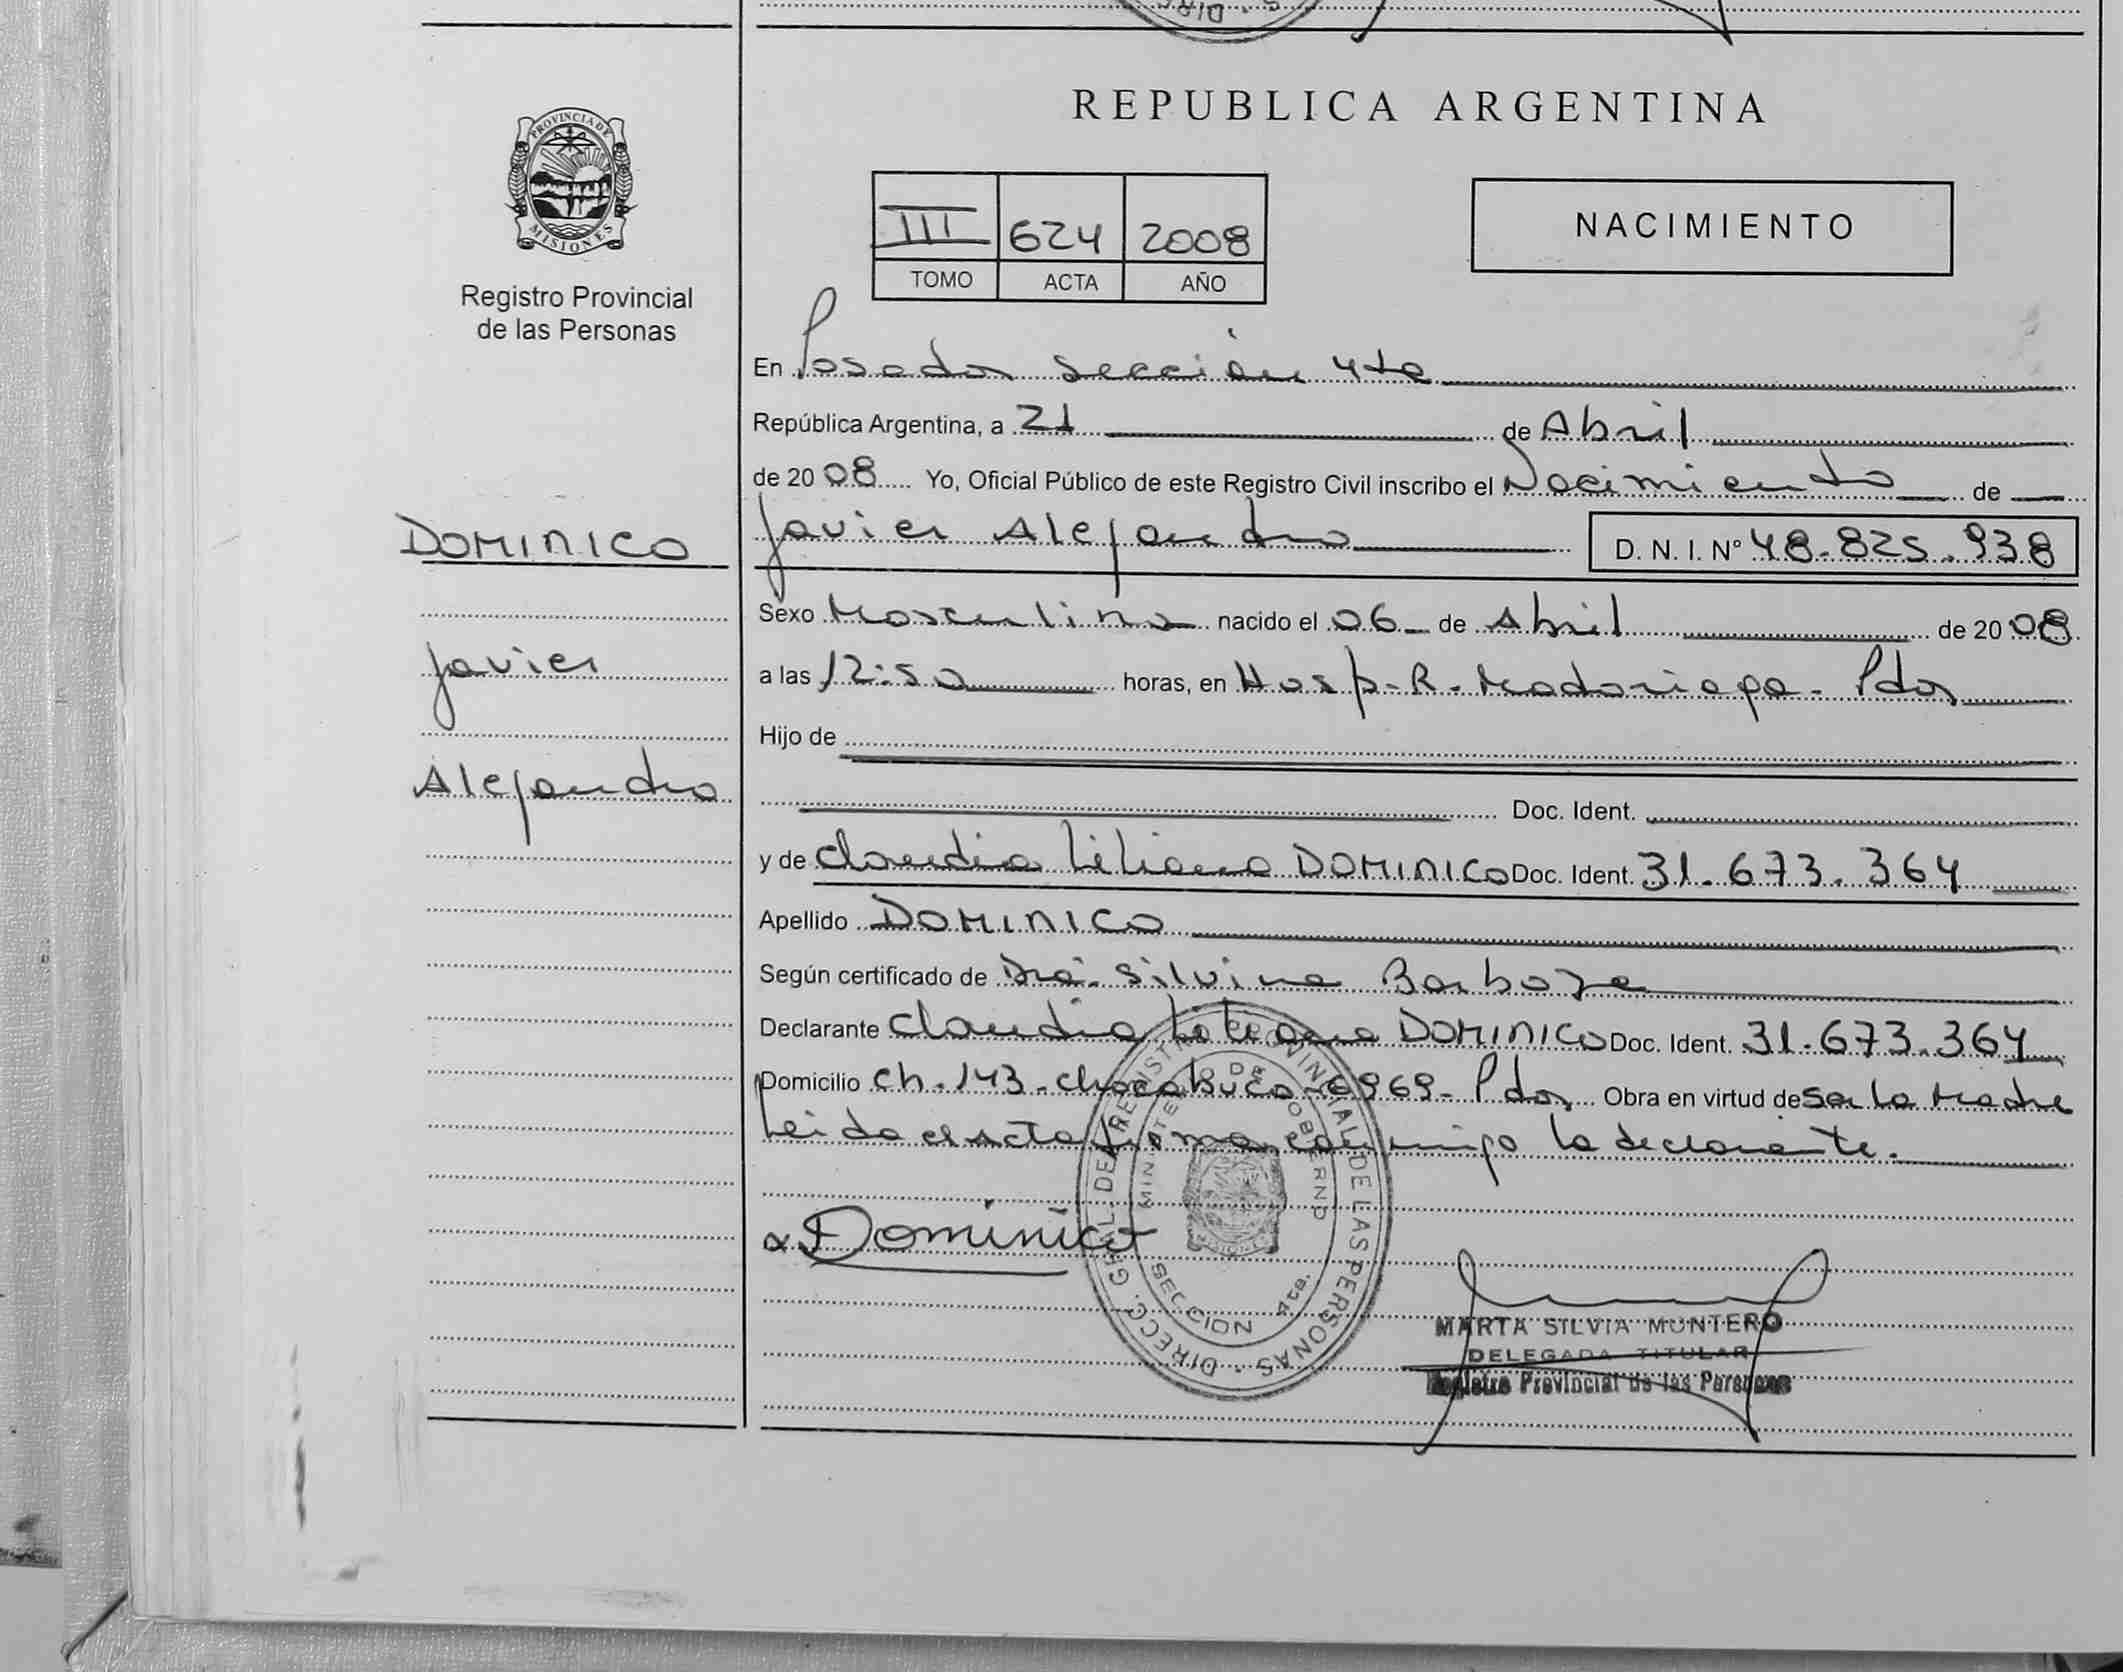 REPUBLICA ARGENTINA
PROVINCIA DE
MISIONES
Registro Provincial
de las Personas
III 624 2008
TOMO ACTA AÑO
NACIMIENTO
En Posadas sección 4ta
República Argentina, a 21 de Abril
de 2008 Yo, Oficial Público de este Registro Civil inscribo el Nacimiento de
DOMINICO
Javier Alejandro D. N. I. Nº 48.825.938
Sexo Masculino nacido el 06 de Abril de 2008
Javier
a las 12:50 horas, en Hosp. R. Madariaga - Pdas
Hijo de
Alejandro
Doc. Ident.
y de Claudia Liliana DOMINICO Doc. Ident. 31.673.364
Apellido DOMINICO
Según certificado de Dra. Silvina Barboza
Declarante Claudia Liliana DOMINICO Doc. Ident. 31.673.364
Domicilio Ch. 143 - Chacabuco - 6969 - Pdas Obra en virtud de Ser la Madre
Leida el acta firma conmigo la declarante.
Dominico
DIRECC. GRAL. DE REGISTRO PROVINCIAL DE LAS PERSONAS
MINISTERIO DE GOBIERNO
SECCION 4ta.
MARTA SILVIA MONTERO
DELEGADA TITULAR
Registro Provincial de las Personas